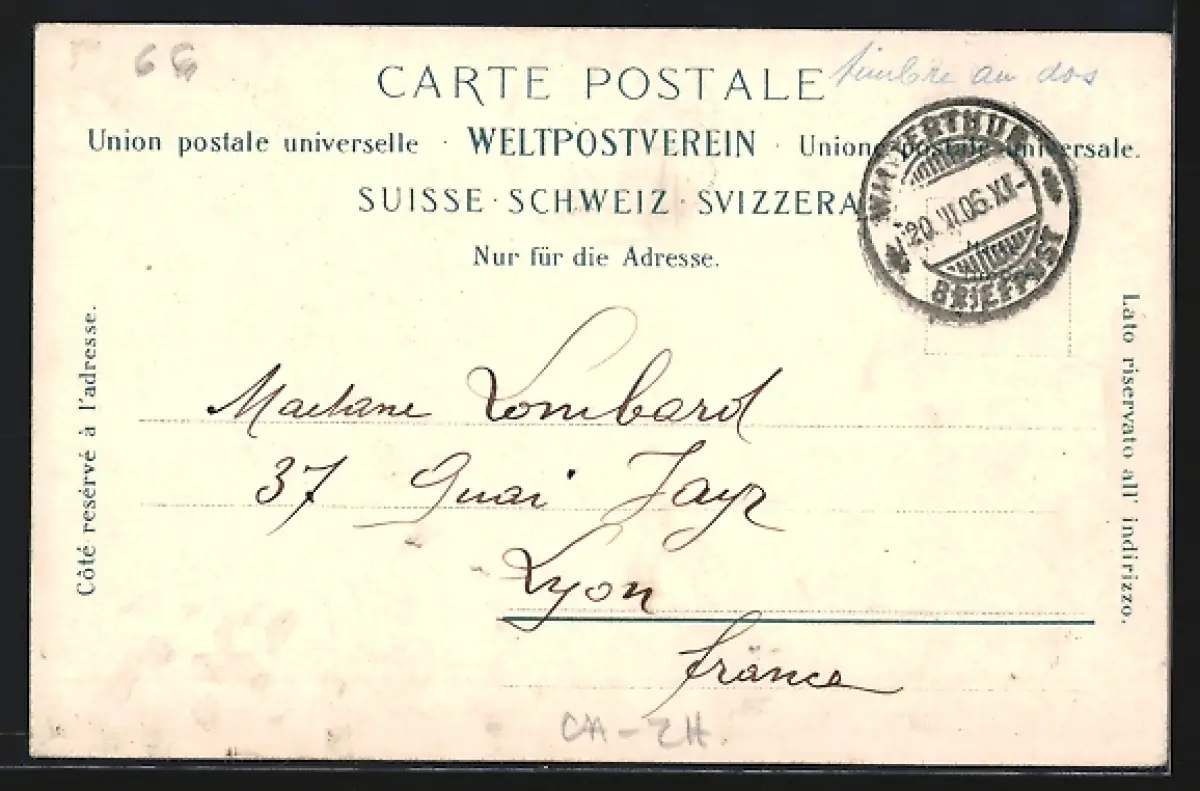 66
CARTE POSTALE
timbre au dos
Union postale universelle · WELTPOSTVEREIN · Unione postale universale.
SUISSE · SCHWEIZ · SVIZZERA
Nur für die Adresse.
WINTERTHUR
20.VI.06.XII-
BRIEFPOST
Côté resérvé à l'adresse.
Lato riservato all' indirizzo.
Madame Lombard
37 Quai Jayr
Lyon
France
CH-ZH.